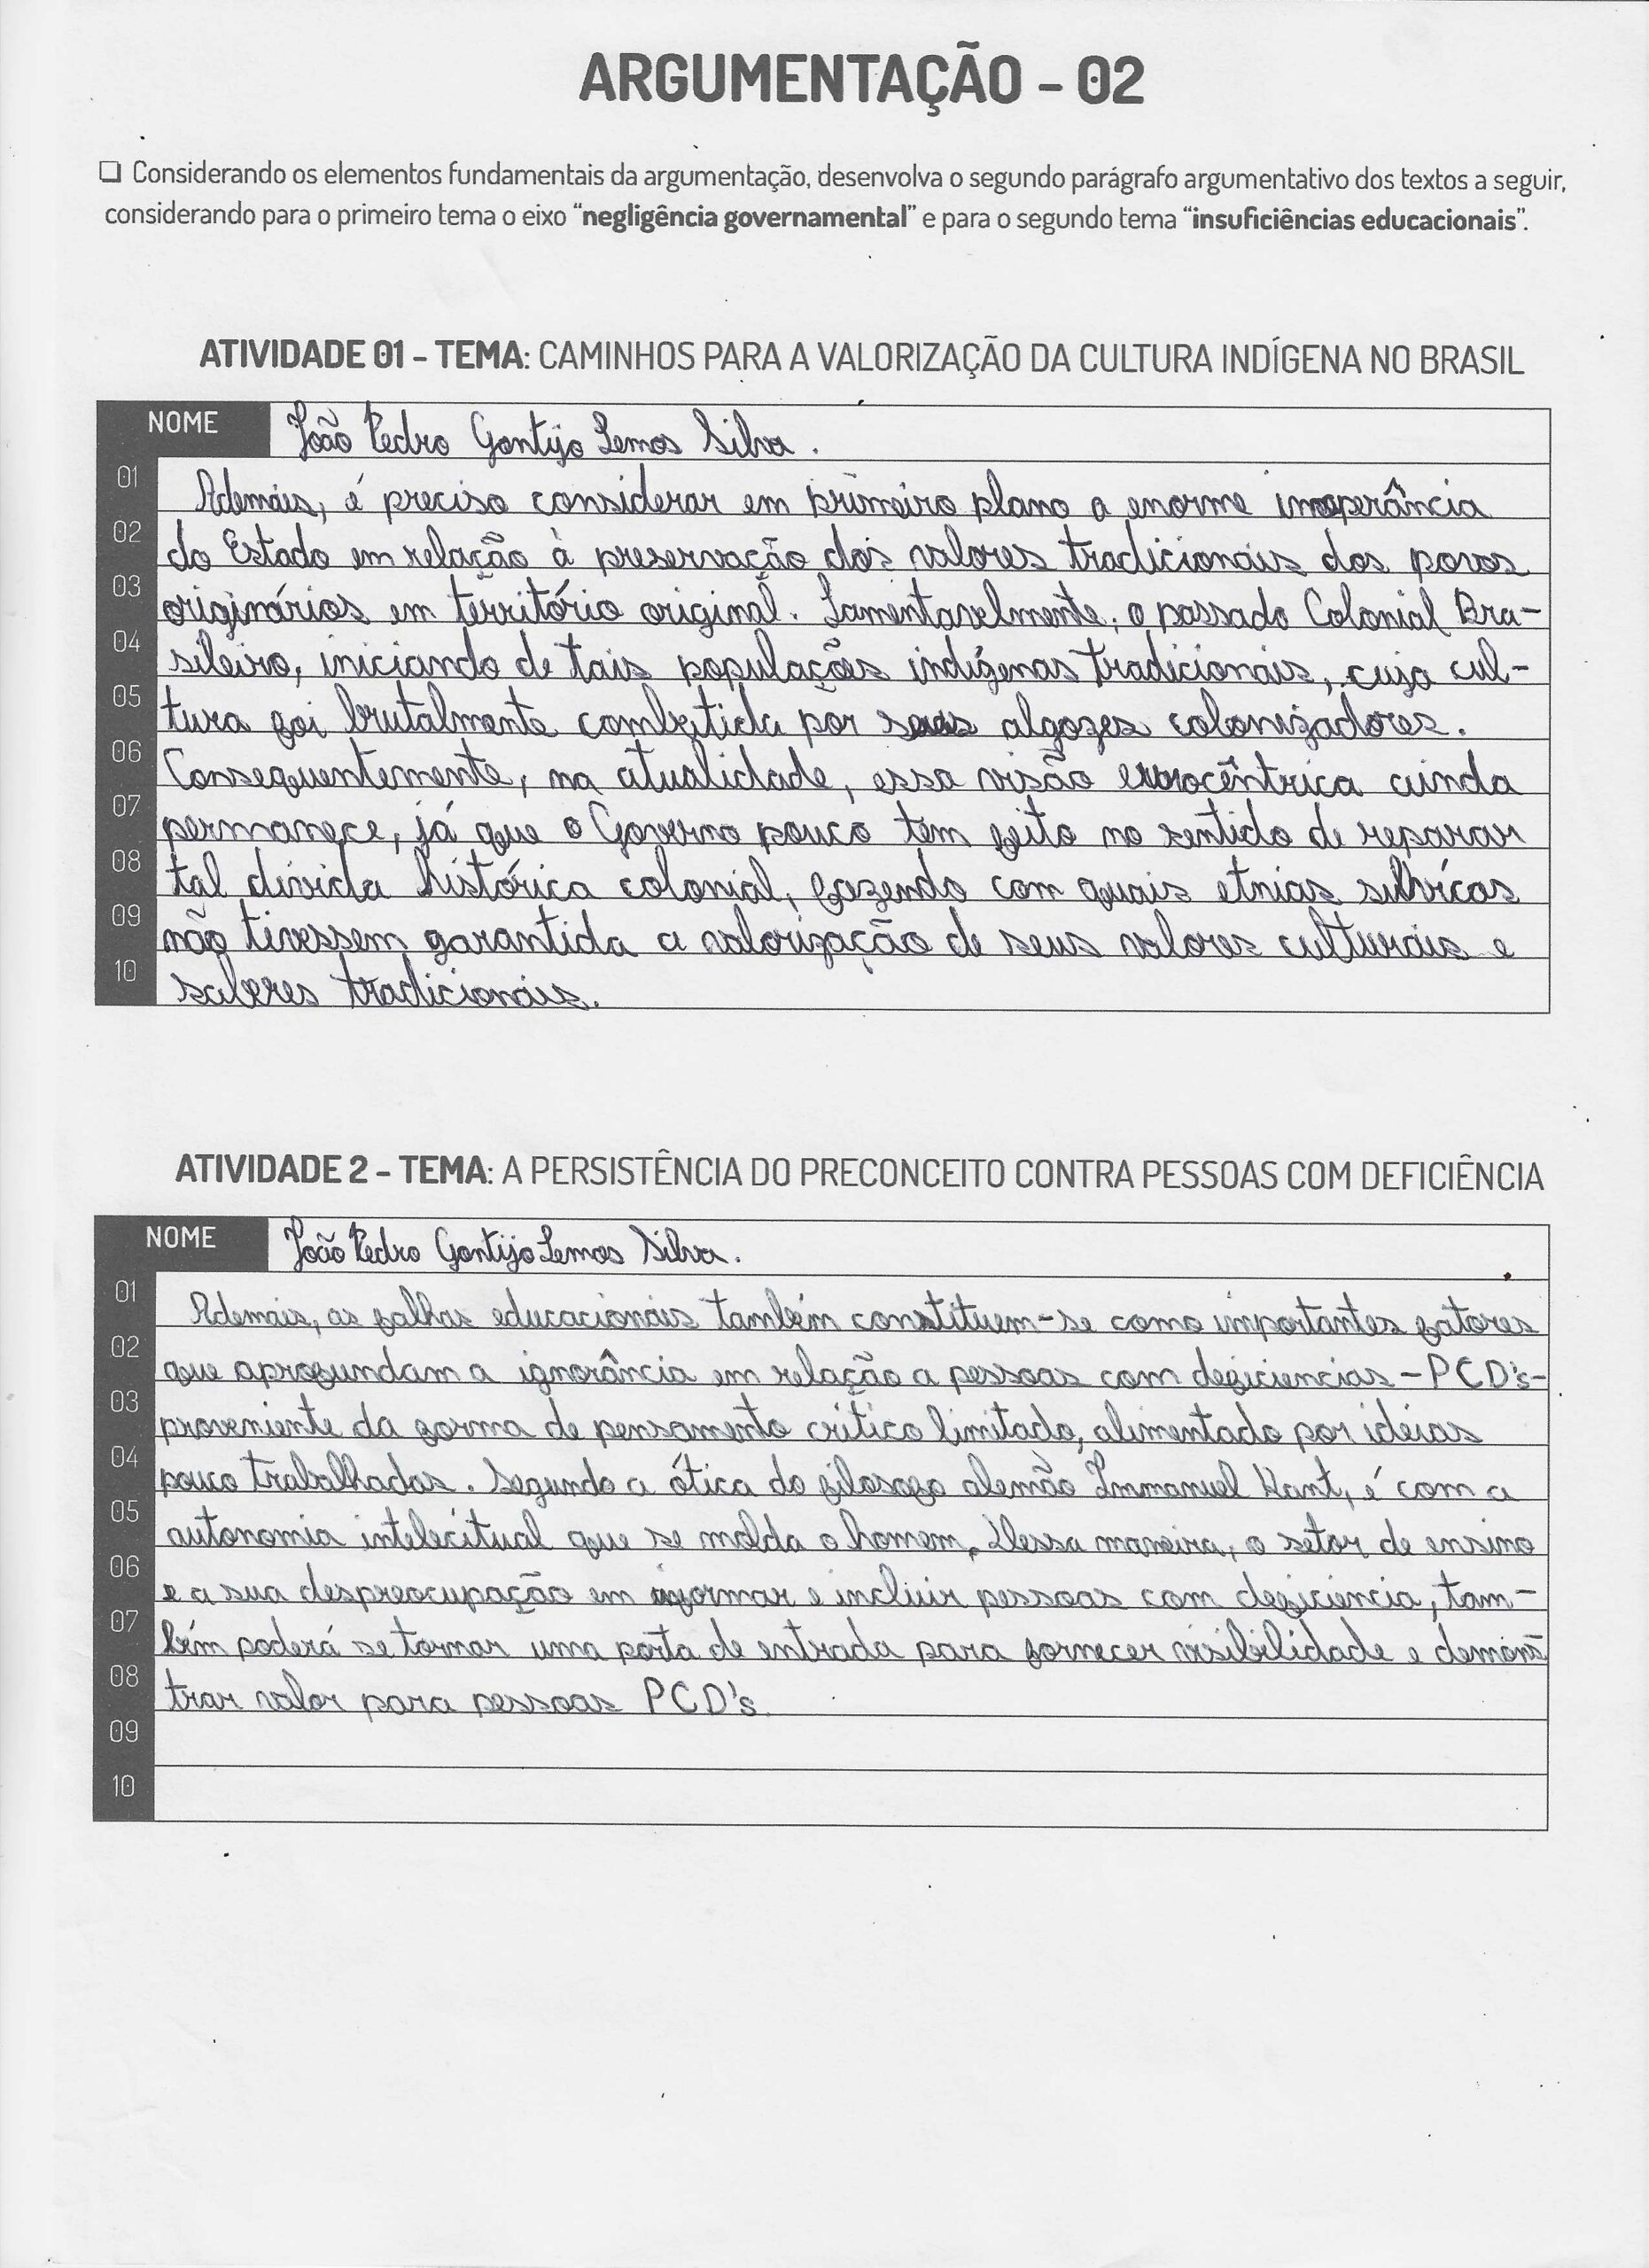 ARGUMENTAÇÃO - 02
❏ Considerando os elementos fundamentais da argumentação, desenvolva o segundo parágrafo argumentativo dos textos a seguir,
considerando para o primeiro tema o eixo "negligência governamental" e para o segundo tema "insuficiências educacionais".
ATIVIDADE 01 - TEMA: CAMINHOS PARA A VALORIZAÇÃO DA CULTURA INDÍGENA NO BRASIL
NOME João Pedro Gontijo Lemos Silva.
01 Ademais, é preciso considerar em primeiro plano a enorme inoperância
02 do Estado em relação à preservação dos valores tradicionais dos povos
03 originários em território original. Lamentavelmente, o passado Colonial Bra-
04 sileiro, iniciando de tais populações indígenas tradicionais, cuja cul-
05 tura foi brutalmente combatida por seus algozes colonizadores.
06 Consequentemente, na atualidade, essa visão eurocêntrica ainda
07 permanece, já que o Governo pouco tem feito no sentido de reparar
08 tal dívida histórica colonial, fazendo com quais etnias silvícas
09 não tivessem garantida a valorização de seus valores culturais e
10 saberes tradicionais.
ATIVIDADE 2 - TEMA: A PERSISTÊNCIA DO PRECONCEITO CONTRA PESSOAS COM DEFICIÊNCIA
NOME João Pedro Gontijo Lemos Silva.
01 Ademais, as falhas educacionais também constituem-se como importantes fatores
02 que aprofundam a ignorância em relação a pessoas com deficiencias - PCD's-
03 proveniente da forma de pensamento crítico limitado, alimentado por idéias
04 pouco trabalhadas. Segundo a ótica do filosofo alemão Immanuel Kant, é com a
05 autonomia intelecitual que se molda o homem. Dessa maneira, o setor de ensino
06 e a sua despreocupação em informar e incluir pessoas com deficiencia, tam-
07 bém poderá se tornar uma porta de entrada para fornecer visibilidade e demons
08 trar valor para pessoas PCD's.
09
10